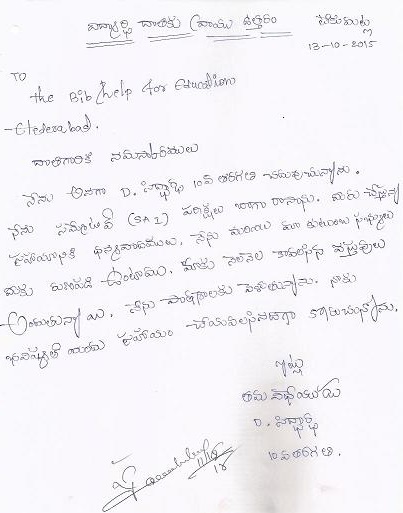 విద్యార్థి దాతకు వ్రాయు ఉత్తరం
పేరుపల్లి
13-10-2015
TO
the Bib/help for Education
Hyderabad.
దాతగారికి నమస్కారములు
నేను అనగా D. సిద్ధార్థ 10వ తరగతి చదువుచున్నాను.
నేను సమ్మేటివ్ (SA 1) పరీక్షలు బాగా రాసాను. మీరు చేస్తున్న
సహాయానికి ధన్యవాదములు. నేను మరియు మా కుటుంబ సభ్యులు
మీకు రుణపడి ఉంటాము. మాకు నెలనెల కావలసిన వస్తువులు
అందుతున్నాయి. నేను పాఠశాలకు వెళుతున్నాను. నాకు
భవిష్యత్ లో సహాయం చేయవలసినదిగా కోరుచున్నాను.
ఇట్లు
తమ విధేయుడు
D. సిద్ధార్థ
10వ తరగతి.